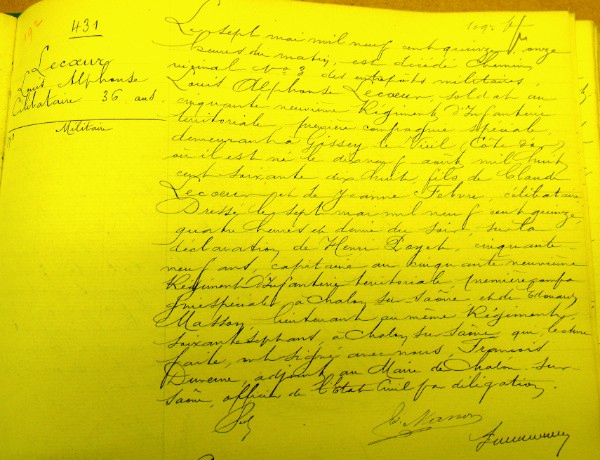 431
Lecœur
Louis Alphonse
Célibataire 36 ans
Militaire
Le sept mai mil neuf cent quinze, onze
heures du matin, est décédé chemin
vicinal N° 3 des entrepôts militaires,
Louis Alphonse Lecœur, soldat au
cinquante neuvième Régiment d'Infanterie
territoriale, première compagnie spéciale,
demeurant à Gissey le Vieil (Côte d'or),
où il est né le dix neuf août mil huit
cent soixante dix huit, fils de Claude
Lecœur et de Jeanne Febvre, célibataire
Dressé le sept mai mil neuf cent quinze
quatre heures et demie du soir, sur la
déclaration de Henri cinquante
neuf ans, capitaine au cinquante neuvième
Régiment d'Infanterie territoriale, première compa
gnie spéciale, à Chalon sur Saône et de Edouard
Masson, lieutenant au même Régiment,
soixante sept ans, à Chalon sur Saône qui, lecture
faite, ont signé avec nous, François
adjoint au Maire de Chalon-sur-
Saône, officier de l'Etat Civil par délégation.
E. Masson